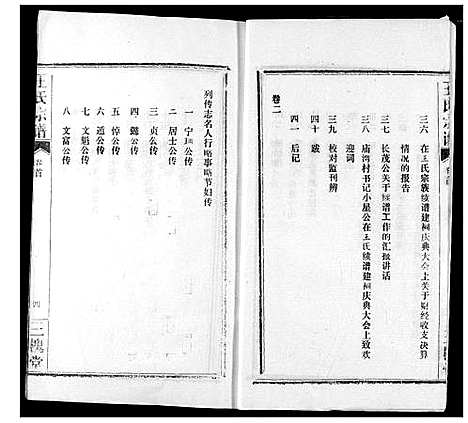 王氏宗谱
卷首
三六 在王氏宗族续谱建祠庆典大会上关于财经收支决算
情况的报告
三七 长茂公关于续谱工作的汇报讲话
三八 庙湾村书记小星公在王氏续谱建祠庆典大会上致欢
迎词
三九 校对监刊辨
四十 跋
四一 后记
卷二
列传志名人行略事略节妇传
一 宁公传
二 居士公传
三 贞公传
四 懿公传
五 悼公传
六 通公传
七 文魁公传
八 文富公传
王氏宗谱
卷首
四
三槐堂